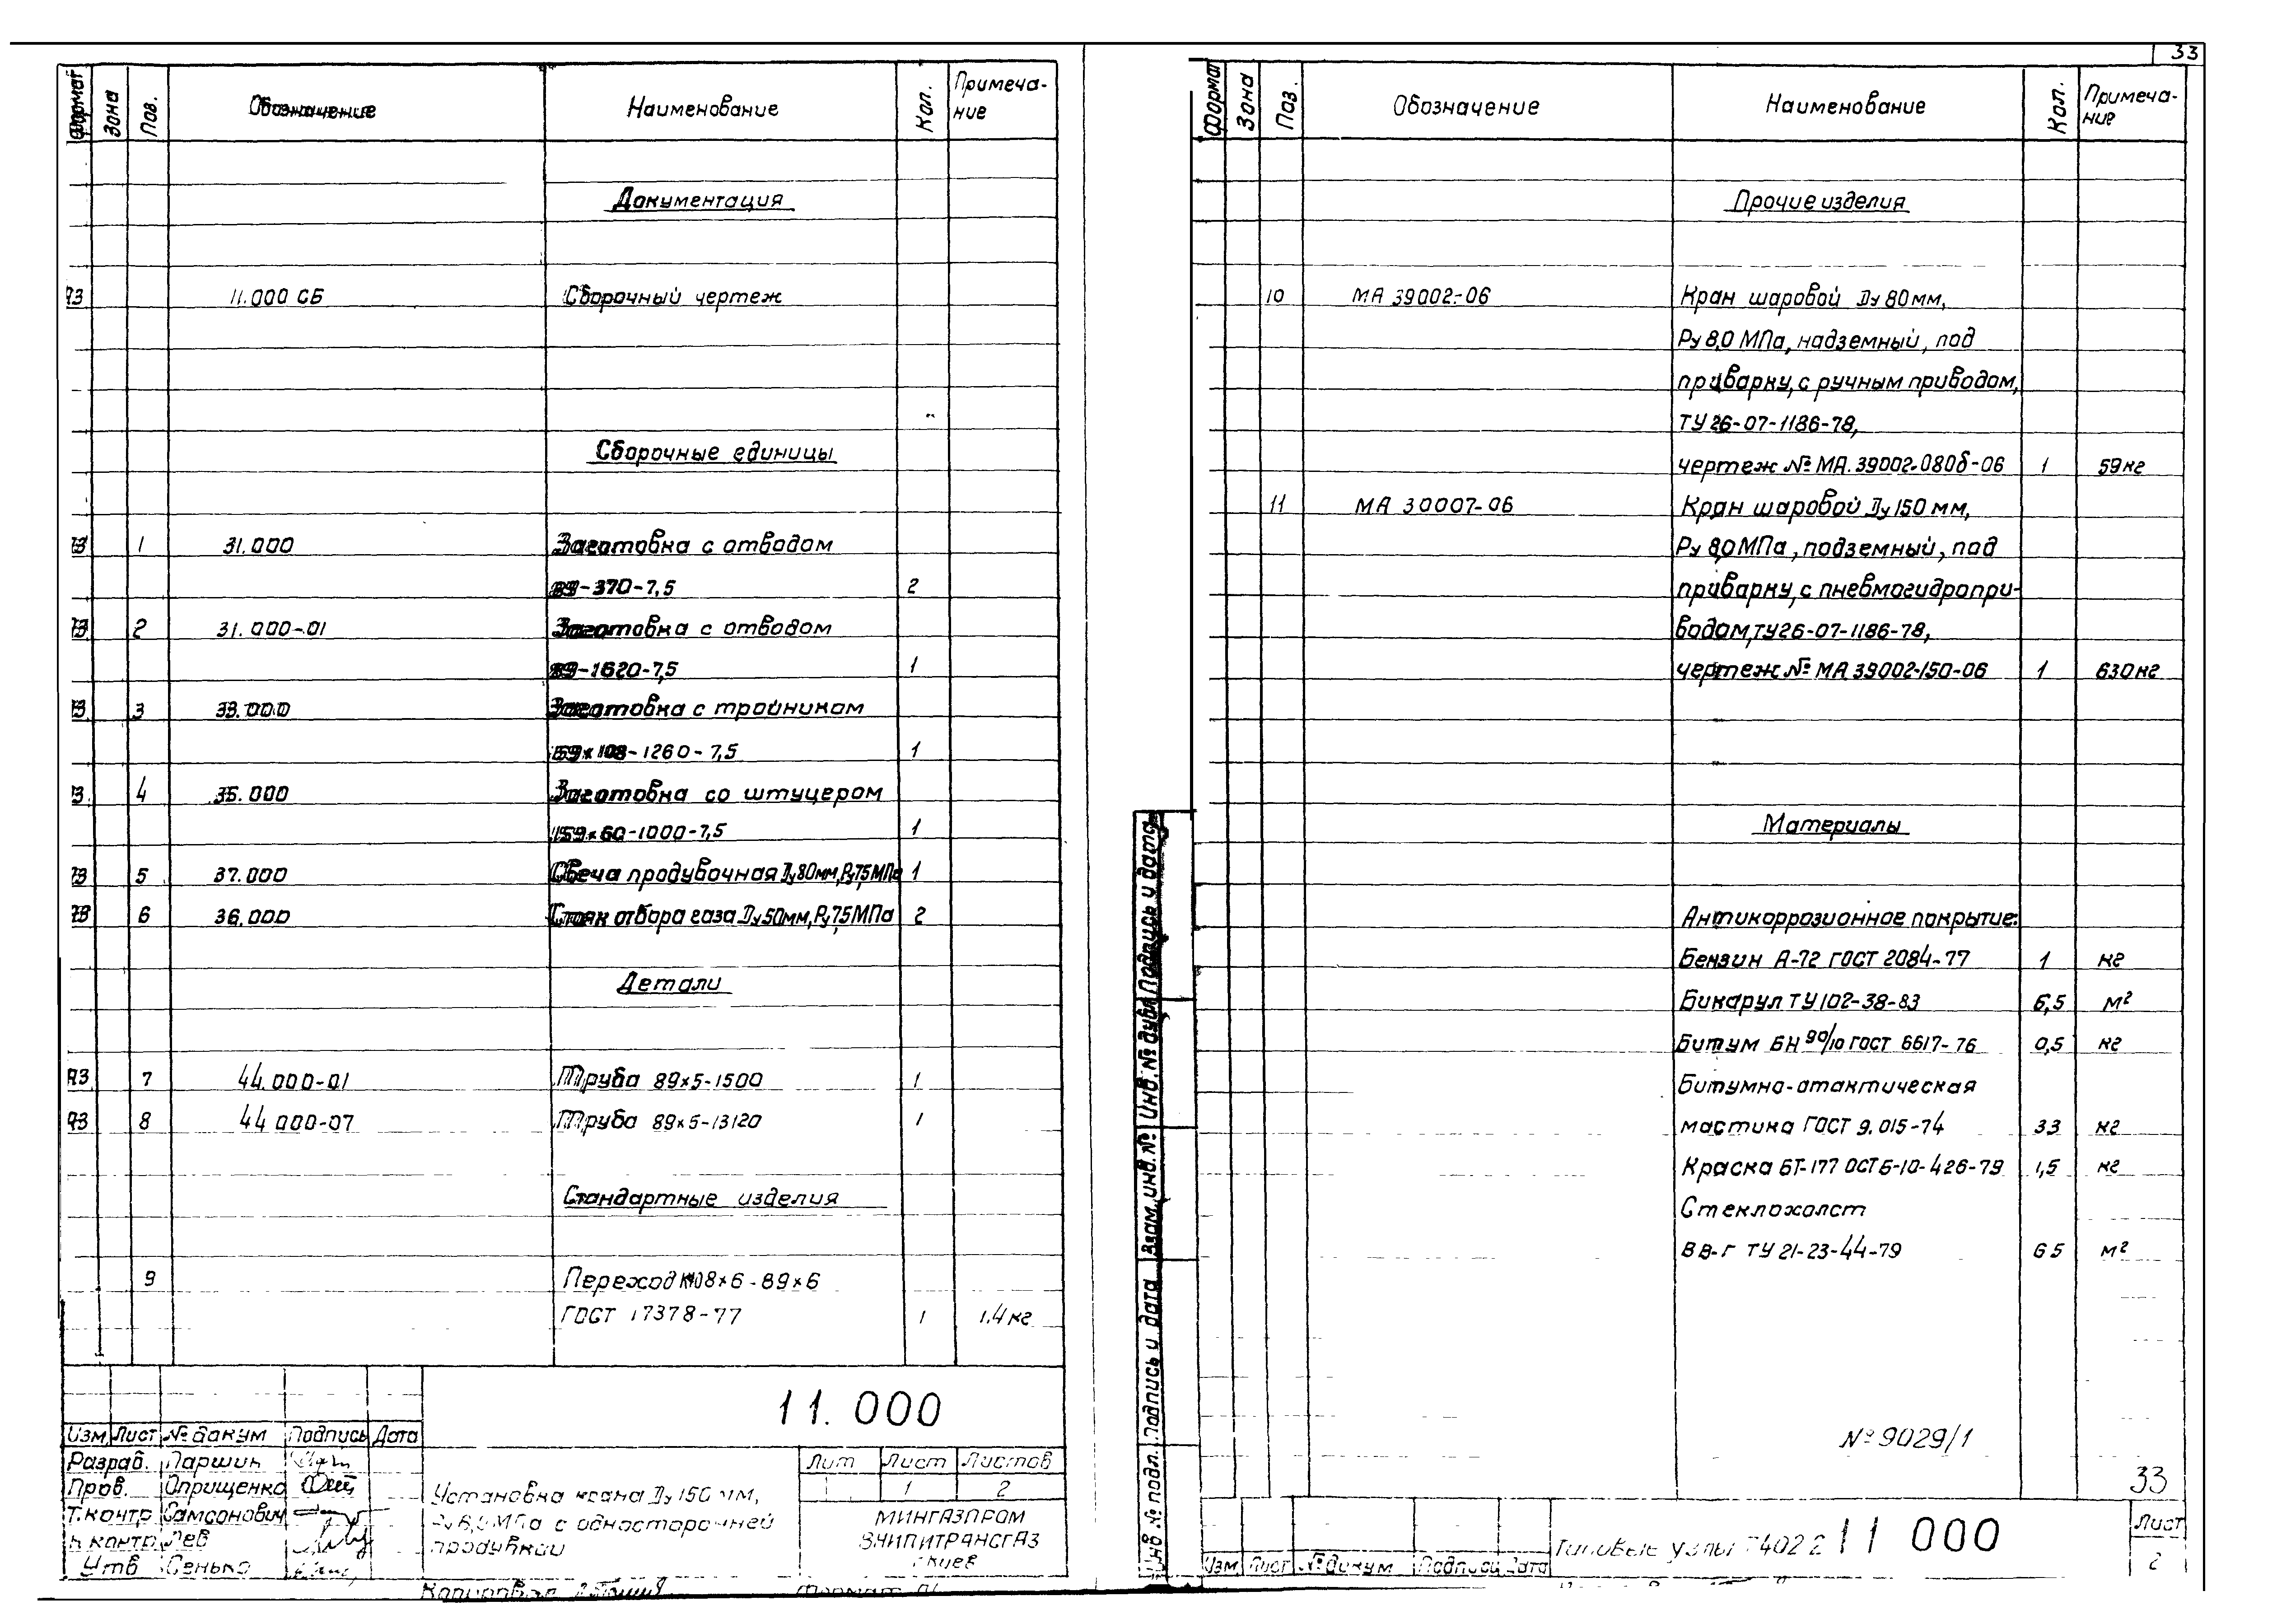 33
Формат Зона Поз. Обозначение Наименование Кол. Примеча-
ние
Документация
А3 11.000 СБ Сборочный чертеж
Сборочные единицы
1 31.000 Заготовка с отводом
89-370-7,5 2
2 31.000-01 Заготовка с отводом
89-1620-7,5 1
3 33.000 Заготовка с тройником
159×108-1260-7,5 1
4 35.000 Заготовка со штуцером
159×60-1000-7,5 1
5 37.000 Свеча продувочная Ду80мм,Ру7,5МПа 1
6 36.000 Стояк отбора газа Ду50мм,Ру7,5МПа 2
Детали
А3 7 44.000-01 Труба 89×5-1500 1
А3 8 44 000-07 Труба 89×5-13120 1
Стандартные изделия
9 Переход К108×6-89×6
ГОСТ 17378-77 1 1.4кг
11.000
Изм Лист № докум Подпись Дата
Разраб. Паршин
Пров. Оприщенко
Т.контр Самсонович
Н контр. Лев
Утв Сенько
Установка крана Ду 150 мм,
с односторонней
продувкой
Лит Лист Листов
1 2
МИНГАЗПРОМ
ВНИПИТРАНСГАЗ
г Киев
Копировал
Формат
Формат Зона Поз. Обозначение Наименование Кол. Примеча-
ние
Прочие изделия
10 МА 39002-06 Кран шаровой Ду 80мм,
Ру 8,0 МПа, надземный, под
приварку, с ручным приводом,
ТУ 26-07-1186-78,
чертеж № МА.39002-080б-06 1 59кг
11 МА 30007-06 Кран шаровой Ду 150 мм,
Ру 8,0 МПа, подземный, под
приварку, с пневмогидропри-
водом, ТУ26-07-1186-78,
чертеж № МА 39002-150-06 1 630кг
Материалы
Антикоррозионное покрытие:
Бензин А-72 ГОСТ 2084-77 1 кг
Бикарул ТУ 102-38-83 6,5 м²
Битум БН 90/10 ГОСТ 6617-76 0,5 кг
Битумно-атактическая
мастика ГОСТ 9.015-74 33 кг
Краска БТ-177 ОСТ 6-10-426-79 1,5 кг
Стеклохолст
ВВ-Г ТУ 21-23-44-79 6 5 м²
№ 9029/1
33
Инв № подл. Подпись и дата Взам. инв. № Инв. № дубл Подпись и дата
Изм Лист № докум Подпись Дата
Типовые узлы 11 000
Лист
2